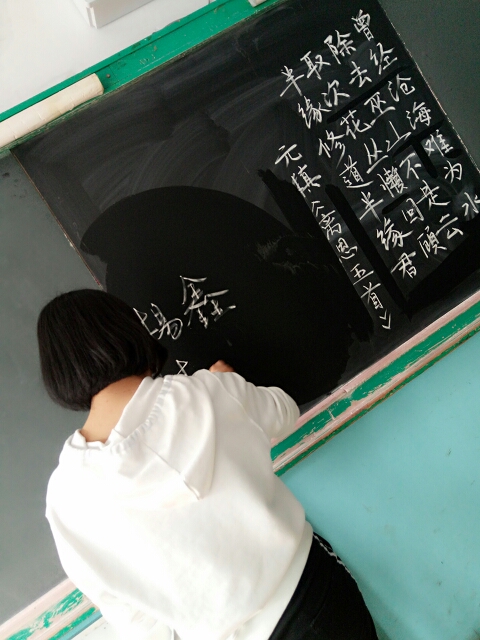 曾经沧海难为水
除去巫山不是云
取次花丛懒回顾
半缘修道半缘君
元稹《离思五首》
鑫